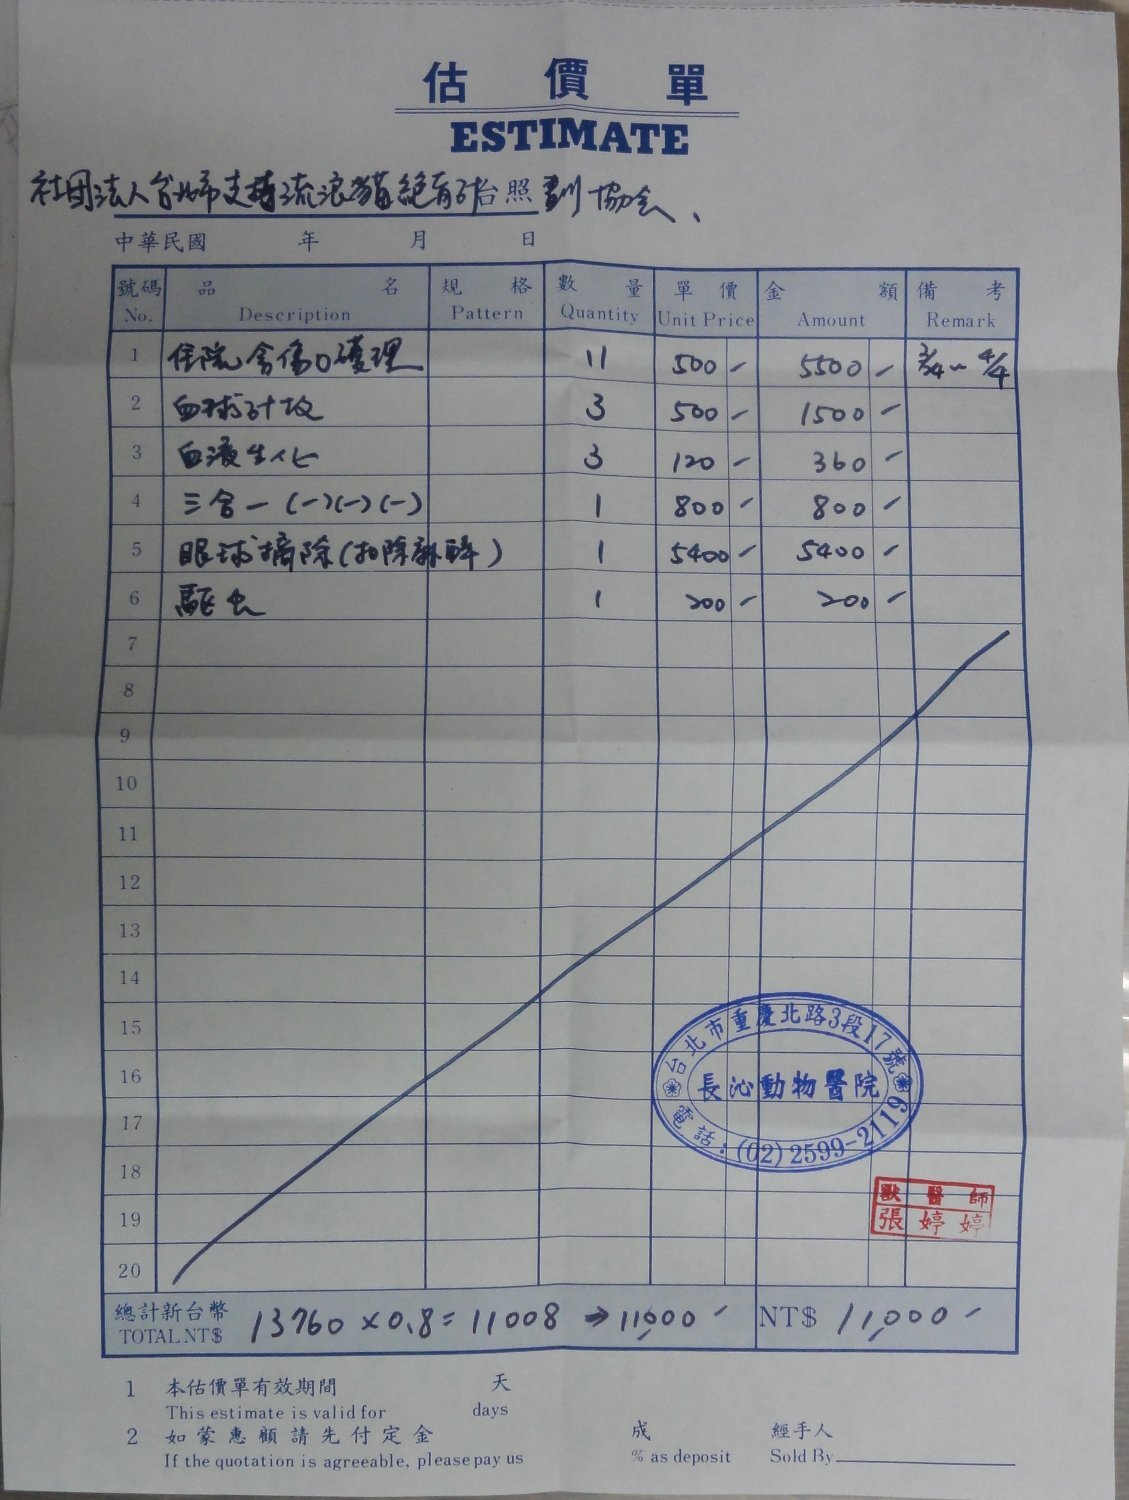 估價單
ESTIMATE
社團法人台北市支持流浪貓絕育計 台照 劃協会、
中華民國 年 月 日
號碼 品名 規格 數量 單價 金額 備考
No. Description Pattern Quantity Unit Price Amount Remark
1 住院含傷口護理 11 500 - 5500 - 3/4~4/4
2 血球計数 3 500 - 1500 -
3 血液生化 3 120 - 360 -
4 三合一(-)(-)(-) 1 800 - 800 -
5 眼球摘除(扣除麻醉) 1 5400 - 5400 -
6 驅虫 1 200 - 200 -
7
8
9
10
11
12
13
14
15
16
17
18
19
20
台北市重慶北路3段17號
長沁動物醫院
電話:(02)2599-2119
獸醫師
張婷婷
總計新台幣 13760×0.8=11008→11,000- NT$ 11,000-
TOTAL NT$
1 本估價單有效期間 天
This estimate is valid for days
2 如蒙惠顧請先付定金 成 經手人
If the quotation is agreeable, please pay us % as deposit Sold By